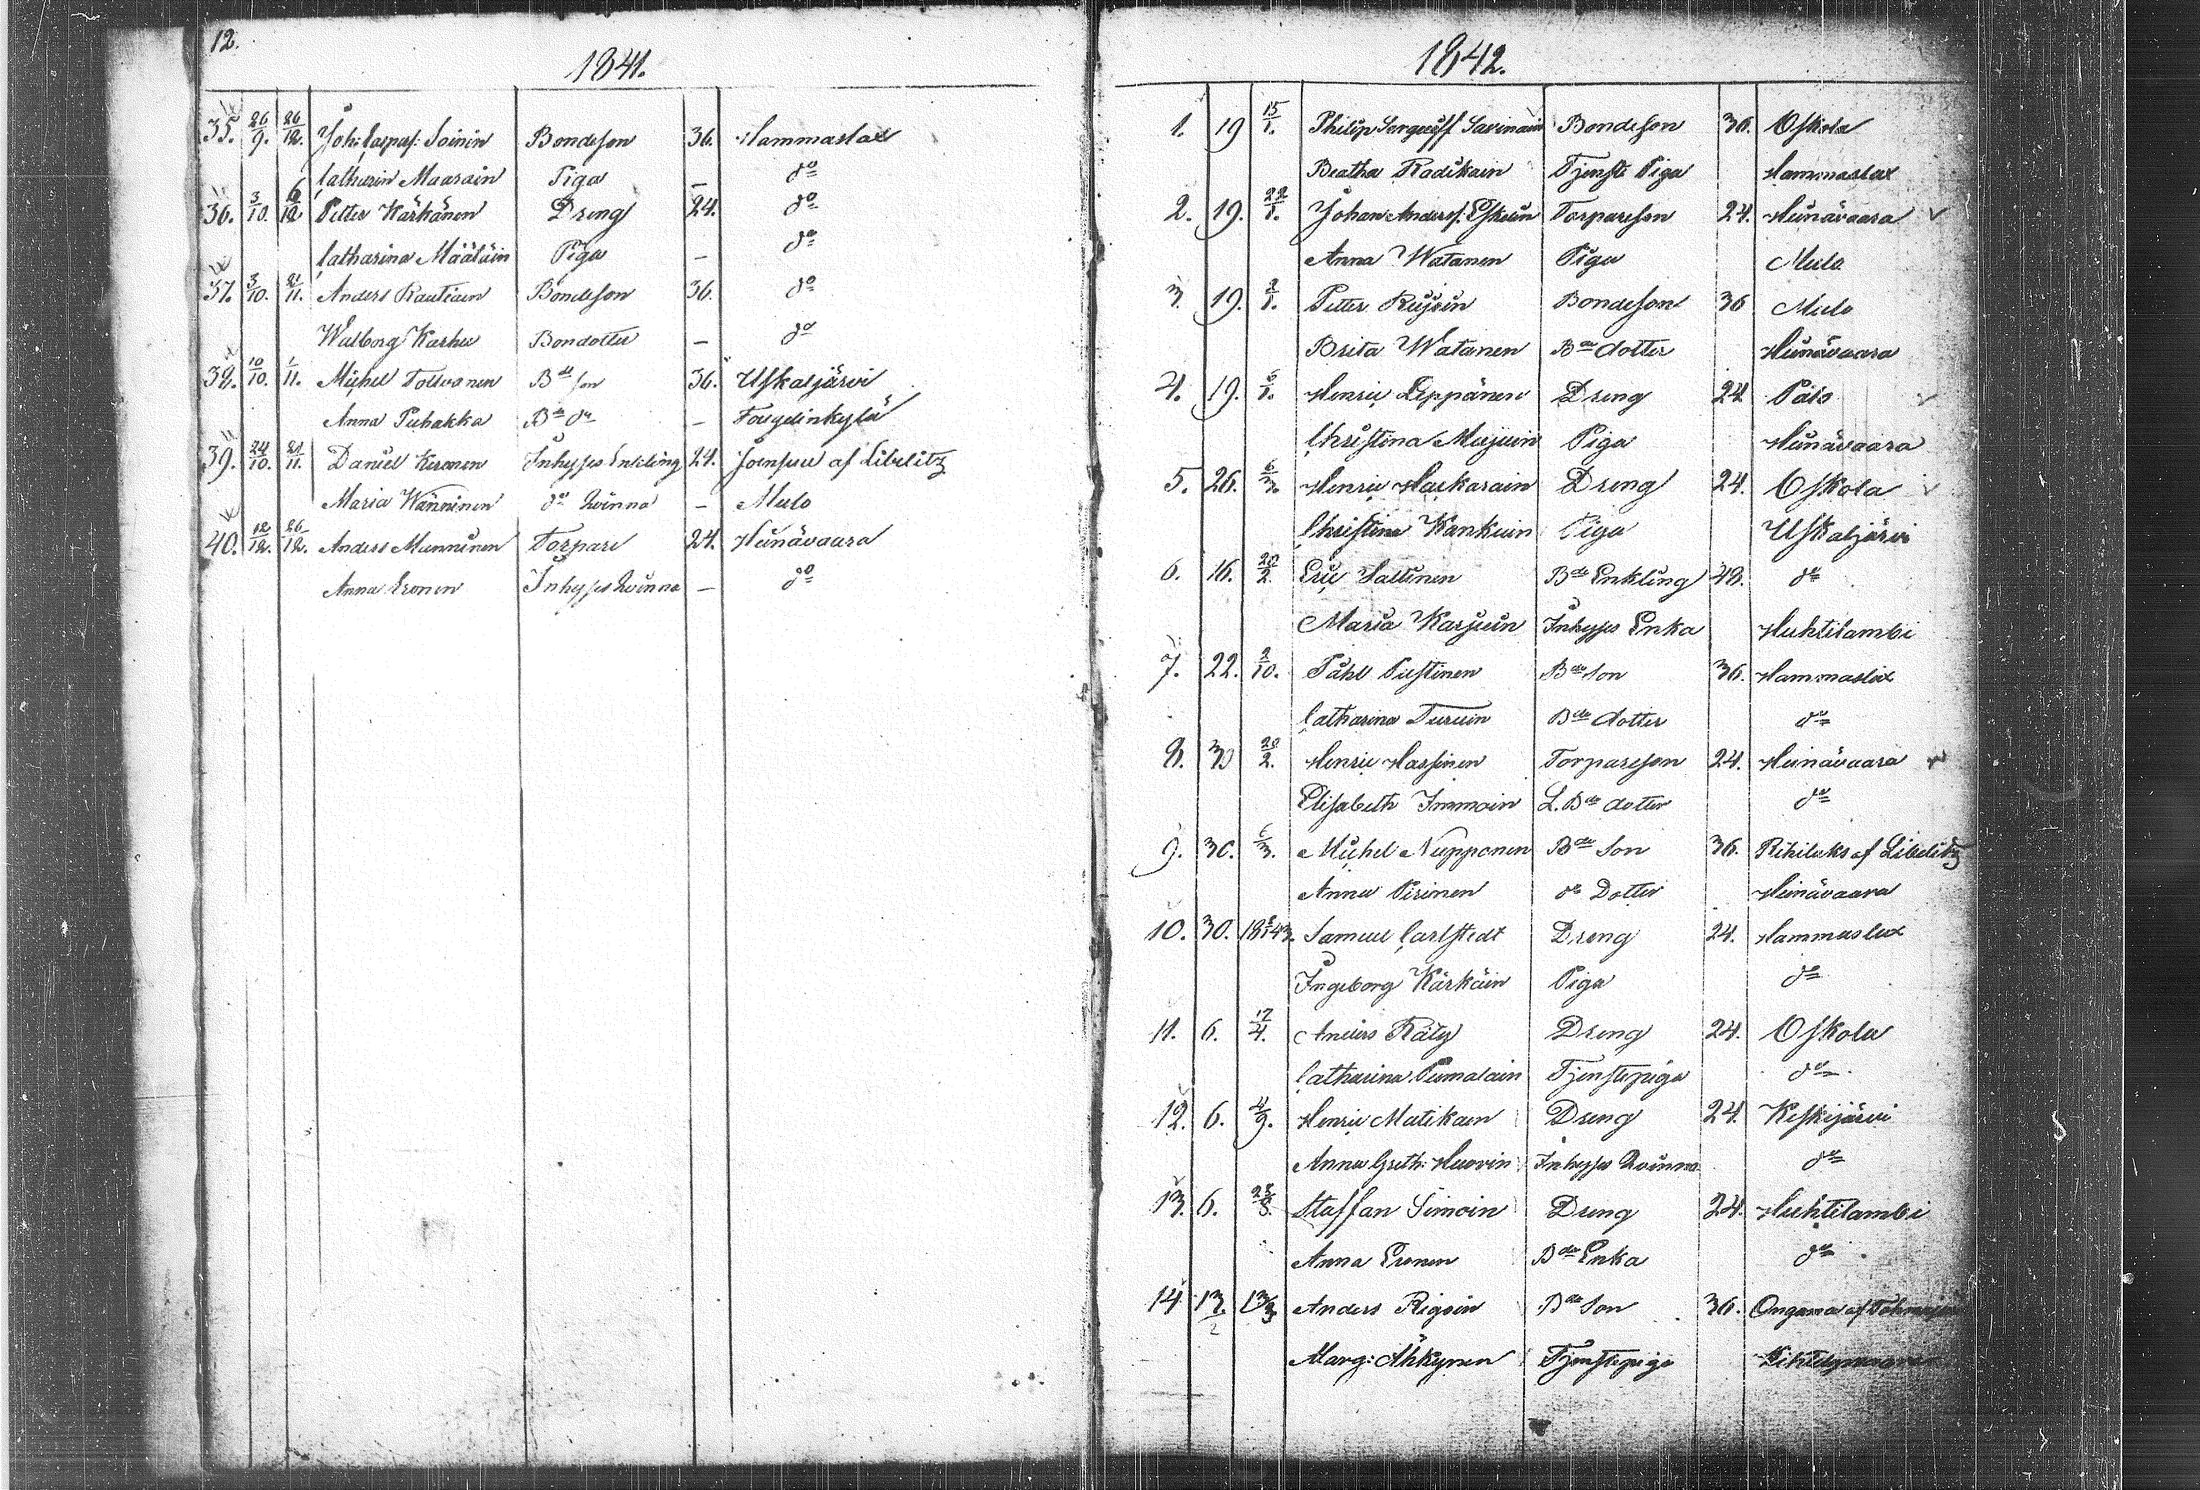 12.
1841.
35. 26/9. 26/12. Joh: Caspars: Soinin Bondeson 36. Hammaslax
Catharin Maarain Piga — do
36. 3/10. 6/12 Petter Kärkänen Dreng 24. do
Catharina Määläin Piga — do
37. 3/10. 21/11. Anders Rautiain Bondeson 36. do
Walborg Karhu Bondotter — do
38. 10/10. 1/11. Michel Tolvanen Bde son 36. Uskaljärvi
Anna Puhakka Bde do — Fougdinkylä
39. 24/10. 21/11. Daniel Keronen Inhyses Enkling 24. Joensuu af Libelitz
Maria Wänninen do Qvinna — Mulo
40. 12/12. 26/12. Anders Munninen Torpare 24. Heinävaara
Anna Eronen Inhyses Qvinna — do
1842.
1. 19 15/1. Philip Sergeeff Savinain Bondeson 36. Oskola
Beatha Radikain Tjenste Piga Hammaslax
2. 19. 22/1. Johan Anders: Eskelin Torpareson 24. Heinävaara
Anna Watanen Piga Mulo
3. 19. 2/1. Petter Bondeson 36 Mulo
Brita Watanen Bde dotter Heinävaara
4. 19. 6/1. Henric Leppänen Dreng 24 Palo
Christina Piga Heinävaara
5. 26. 6/3. Henric Harkarain Dreng 24. Oskola
Christina Kankuin Piga Uskaljärvi
6. 16. 20/2. Eric Saltinen Bde Enkling 48. do
Maria Karjuin Inhyses Enka Huhtilambi
7. 22. 2/10. Påhl Piestinen Bde son 36. Hammaslax
Catharina Turuin Bde dotter do
8. 30 20/2. Henric Hassinen Torpareson 24. Heinävaara
Elisabeth Immoin L. Bde dotter do
9. 30. 6/3. Michel Nupponen Bde Son 36. af Libelitz
Anna Pirinen do Dotter Heinävaara
10. 30. Samuel Carlstedt Dreng 24. Hammaslax
Ingeborg Kärkäin Piga do
11. 6. 17/4. Anders Räty Dreng 24. Oskola
Catharina Pumalain Tjenstepiga do
12. 6. 4/9. Henric Matikain Dreng 24. Keskijärvi
Anna Greth: Huovin Inhyses Qvinna do
13. 6. Staffan Simoin Dreng 24. Huhtilambi
Anna Eronen Bde Enka do
14 13. 13/3 Anders Rigoin Bde Son 36. Onkamo af
Marg: Ahkynen Tjenstepiga